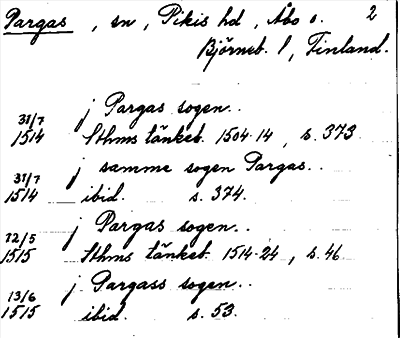 Pargas, sn, Pikis hd, Åbo o. 2
Björneb. l, Finland.
j Pargas sogen..
31/7
1514 Sthms tänkeb. 1504-14, s. 373
j samme sogen Pargas..
31/7
1514 ibid. s. 374.
j Pargas sogen..
12/5
1515 Sthms tänkeb. 1514-24, s. 46
j Pargass sogen..
13/6
1515 ibid. s. 53.